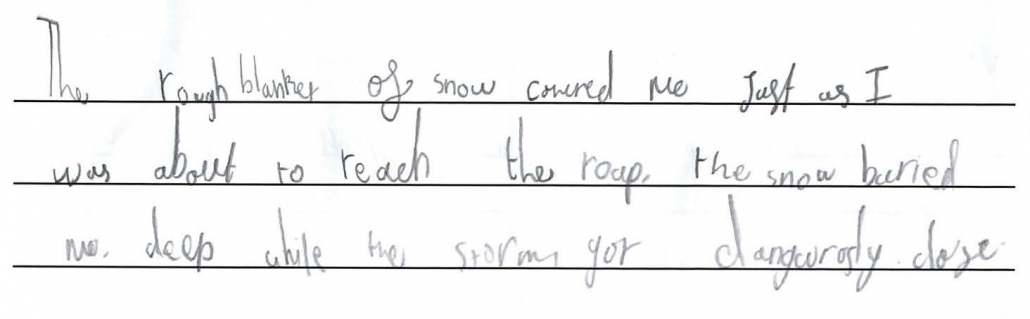 The rough blanket of snow covered me Just as I
was about to reach the roap. the snow buried
me. deep while the storm got dangourosly close.